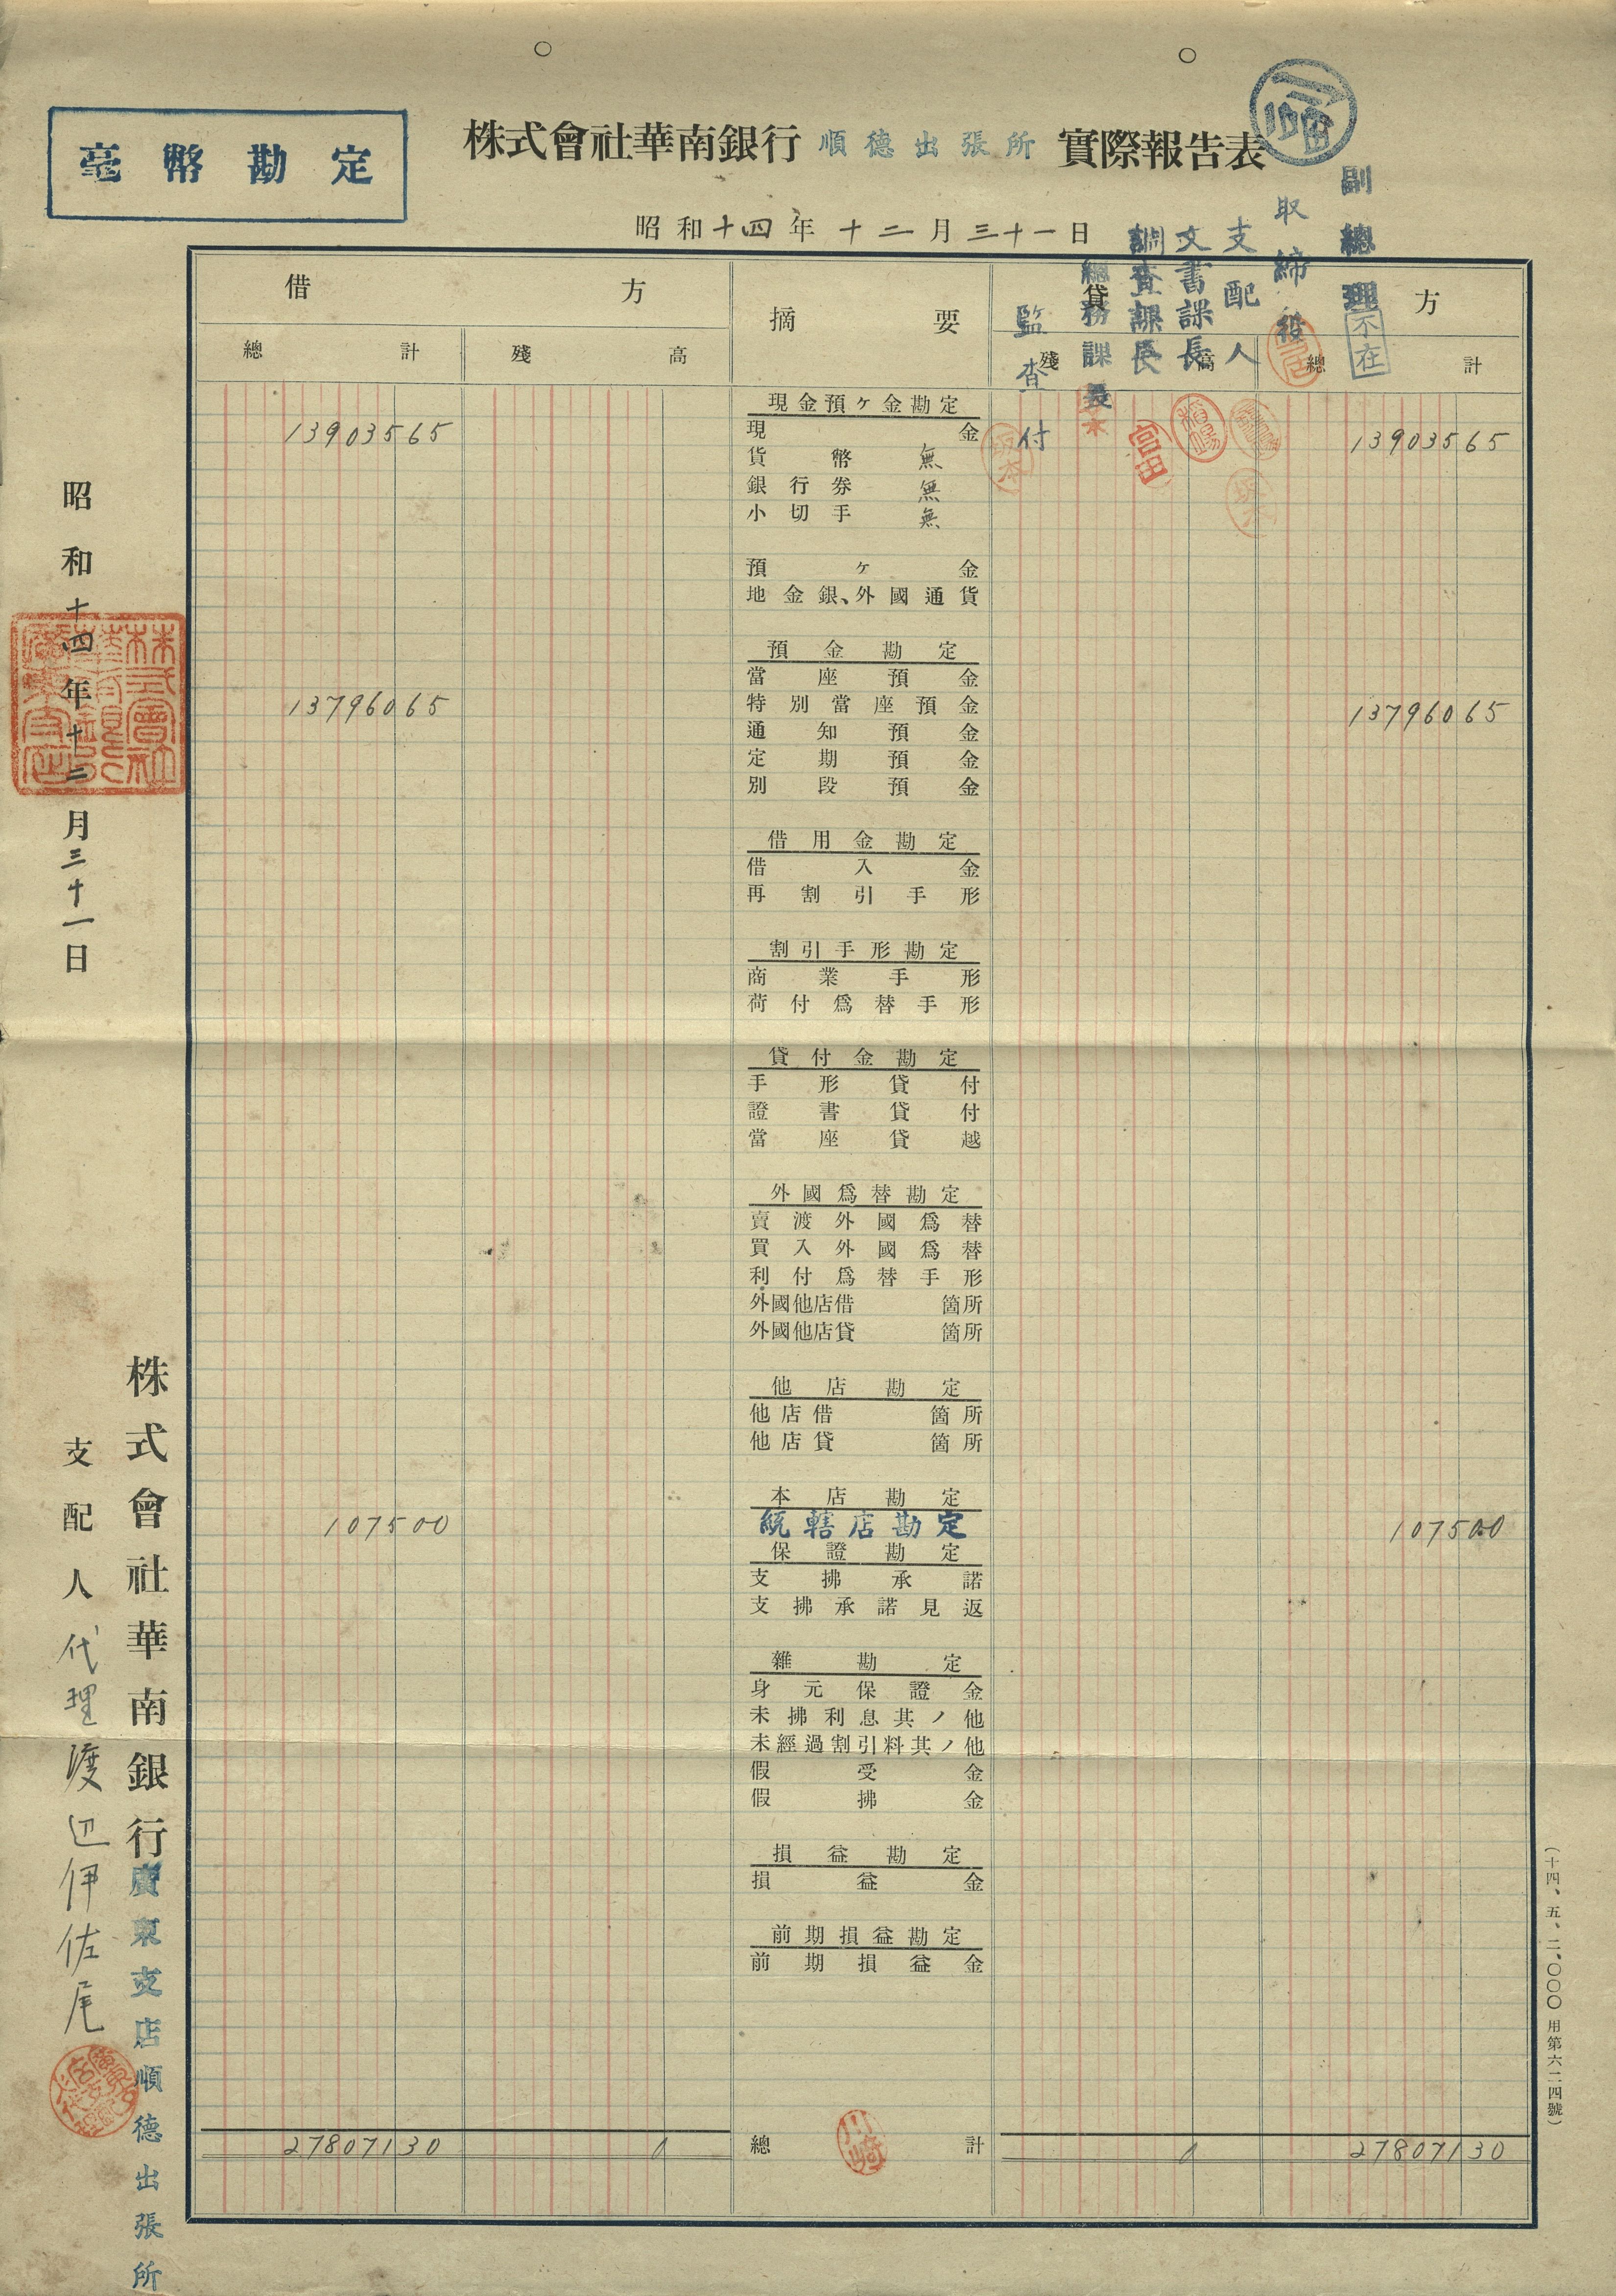 毫幣勘定
株式會社華南銀行 順德出張所 實際報告表
昭和十四年十二月三十一日
副總理
不在
取締役
支配人
文書課長
調査課長
總務課長
監査付
借方
摘要
貸方
總計
殘高
殘高
總計
現金預ヶ金勘定
13903565 現金 13903565
貨幣 無
銀行券 無
小切手 無
預ヶ金
地金銀、外國通貨
預金勘定
當座預金
13796065 特別當座預金 13796065
通知預金
定期預金
別段預金
借用金勘定
借入金
再割引手形
割引手形勘定
商業手形
荷付爲替手形
貸付金勘定
手形貸付
證書貸付
當座貸越
外國爲替勘定
賣渡外國爲替
買入外國爲替
利付爲替手形
外國他店借 箇所
外國他店貸 箇所
他店勘定
他店借 箇所
他店貸 箇所
本店勘定
107500 統轄店勘定 107500
保證勘定
支拂承諾
支拂承諾見返
雜勘定
身元保證金
未拂利息其ノ他
未經過割引料其ノ他
假受金
假拂金
損益勘定
損益金
前期損益勘定
前期損益金
27807130 0 總計 0 27807130
川崎
宮田
坂本
昭和十四年十二月三十一日
株式會社華南銀行廣東支店順德出張所
支配人代理 渡辺伊佐尾
(十四、五、二、〇〇〇用第六二四號)